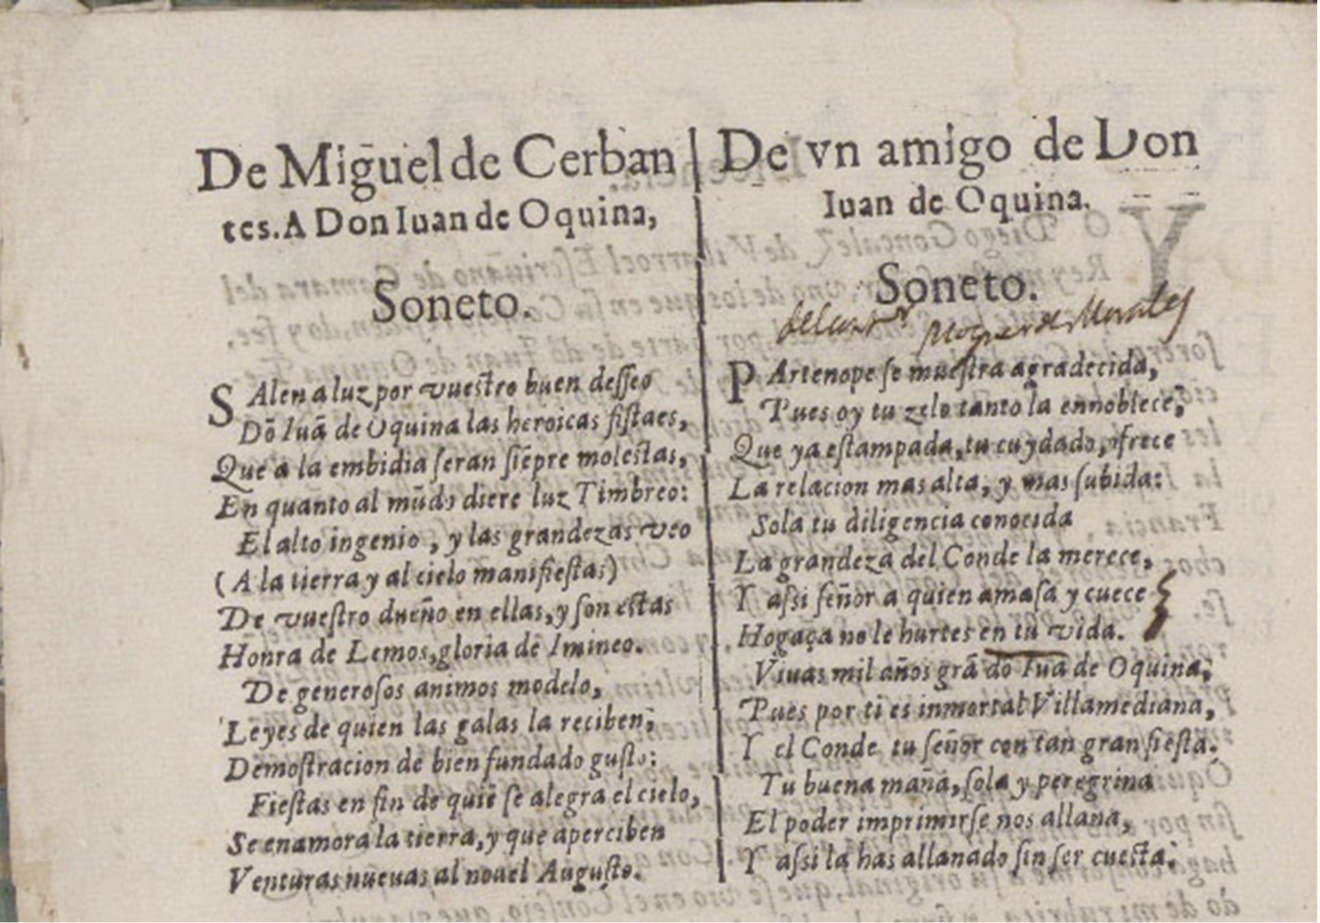 De Miguel de Cerban
tes. A Don Iuan de Oquina,
Soneto.
SAlen a luz por vuestro buen desseo
Dõ Iuã de Oquina las heroicas fistaes,
Que a la embidia seran siẽpre molestas,
En quanto al mũdo diere luz Timbreo:
El alto ingenio, y las grandezas veo
(A la tierra y al cielo manifiestas)
De vuestro dueño en ellas, y son estas
Honra de Lemos, gloria de Imineo.
De generosos animos modelo,
Leyes de quien las galas la reciben;
Demostracion de bien fundado gusto:
Fiestas en fin de quiẽ se alegra el cielo,
Se enamora la tierra, y que aperciben
Venturas nueuas al nouel Augusto.
De vn amigo de Don
Iuan de Oquina.
Soneto.
de Morales
PArtenope se muestra agradecida,
Pues oy tu zelo tanto la ennoblece,
Que ya estampada, tu cuydado, ofrece
La relacion mas alta, y mas subida:
Sola tu diligencia conocida
La grandeza del Conde la merece,
Y assi señor a quien amasa y cuece
Hogaça no le hurtes en tu vida.
Viuas mil años grã dõ Iuã de Oquina,
Pues por ti es inmortal Villamediana,
Y el Conde tu señor con tan gran fiesta.
Tu buena maña, sola y peregrina
El poder imprimirse nos allana,
Y assi la has allanado sin ser cuesta.